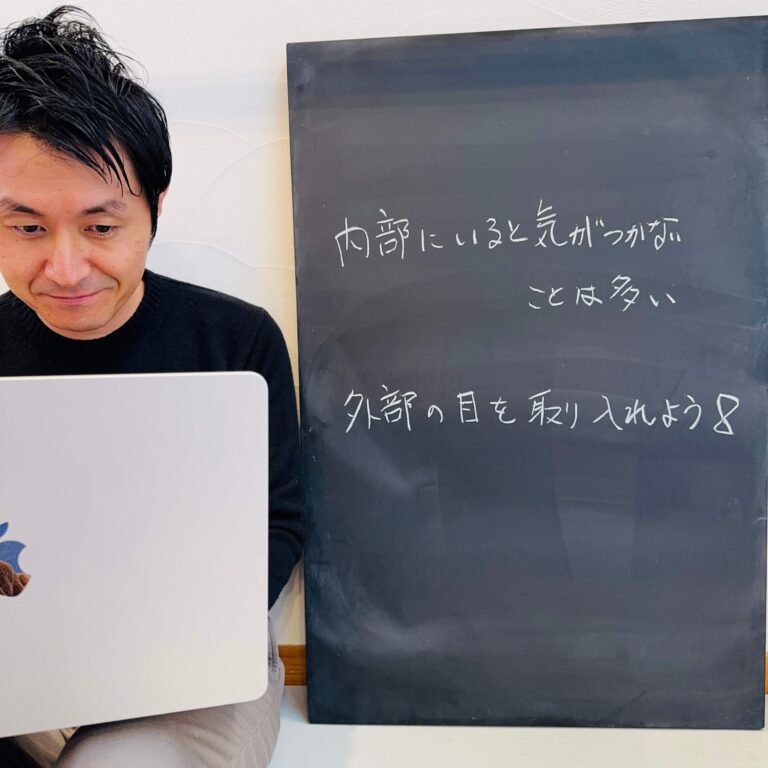 内部にいると気がつかない
ことは多い
外部の目を取り入れよう!